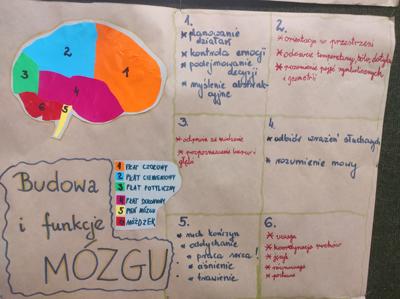 2
1
3
4
6
5
1 PŁAT CZOŁOWY
2 PŁAT CIEMIENIOWY
3 PŁAT POTYLICZNY
4 PŁAT SKRONIOWY
5 PIEŃ MÓZGU
6 MÓŻDŻEK
Budowa
i funkcje
MÓZGU
1.
* planowanie
działań
* kontrola emocji
* podejmowanie
decyzji
* myślenie abstrak-
cyjne
2.
* orientacja w przestrzeni
* odczucie temperatury, bólu, dotyku
* rozumienie pojęć symbolicznych
i geometrii
3.
* odpowiada za widzenie
* rozpoznawanie barw i
głębi
4.
* odbiór wrażeń słuchowych
* rozumienie mowy
5.
* ruch kończyn
* oddychanie
* praca serca!
* ciśnienie
* trawienie
6.
* uwaga
* koordynacja ruchów
* język
* równowaga
* postawa